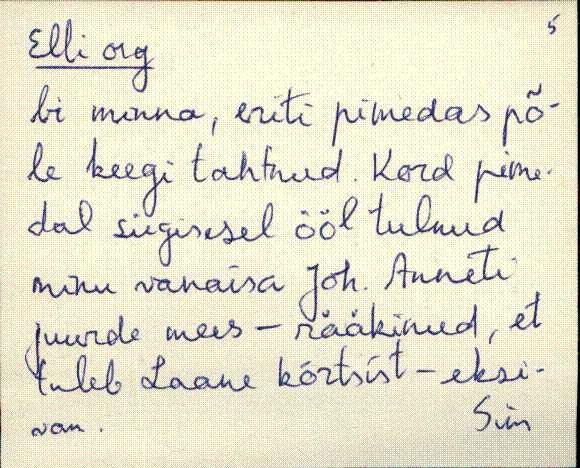 5
Elli org
bi minna, eriti pimedas põ-
le keegi tahtnud. Kord pime-
dal sügisesel ööl tulnud
minu vanaisa Joh. Anneti
juurde mees – rääkinud, et
tuleb Laane kõrtsist – eksi-
van. Siin